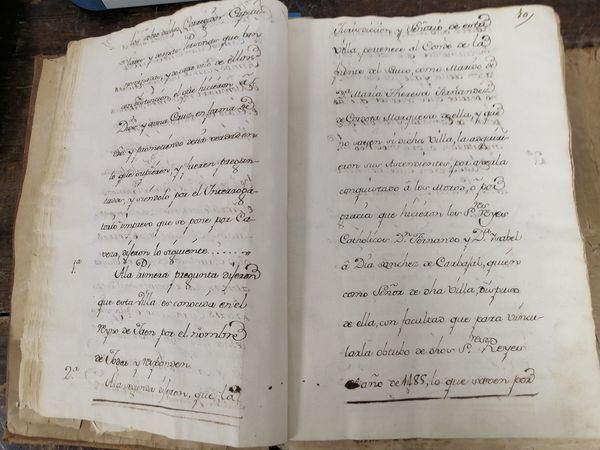 los sobre dichos
y de cada uno de ellos
el que hicieron
Dios, y a una Cruz, en forma de
dro y prometido decir verdad en
lo que supieren, y fueren pregun-
tados, y siendolo por el Interroga-
torio impreso que se pone por Ca-
veza, dijeron lo siguiente
1ª A la primera pregunta dijeron
que esta Villa es conocida en el
Reyno de Jaen por el nombre
de Jodar y responden
2ª A la segunda dijeron, que la
10
Jurisdiccion y Señorio de esta
Villa, pertenece al Conde de la
fuente del Sauco, como Marido de
Dª Maria Theresa Fernandez
de Cordova Marquesa de ella, y que
no saven si dicha Villa, la adquiri-
eron sus Ascendientes, por averla
conquistado â los Moros, ô por
gracia que hicieron los Sres Reyes
Catholicos Dn Fernando y Dª Ysabel
â Dia Sanchez de Carbajal, quien
como Señor de dha Villa, dispuso
de ella, con facultad que para vincu-
larla obtubo de dhos Sres Reyes
el año de 1485, lo que saven por